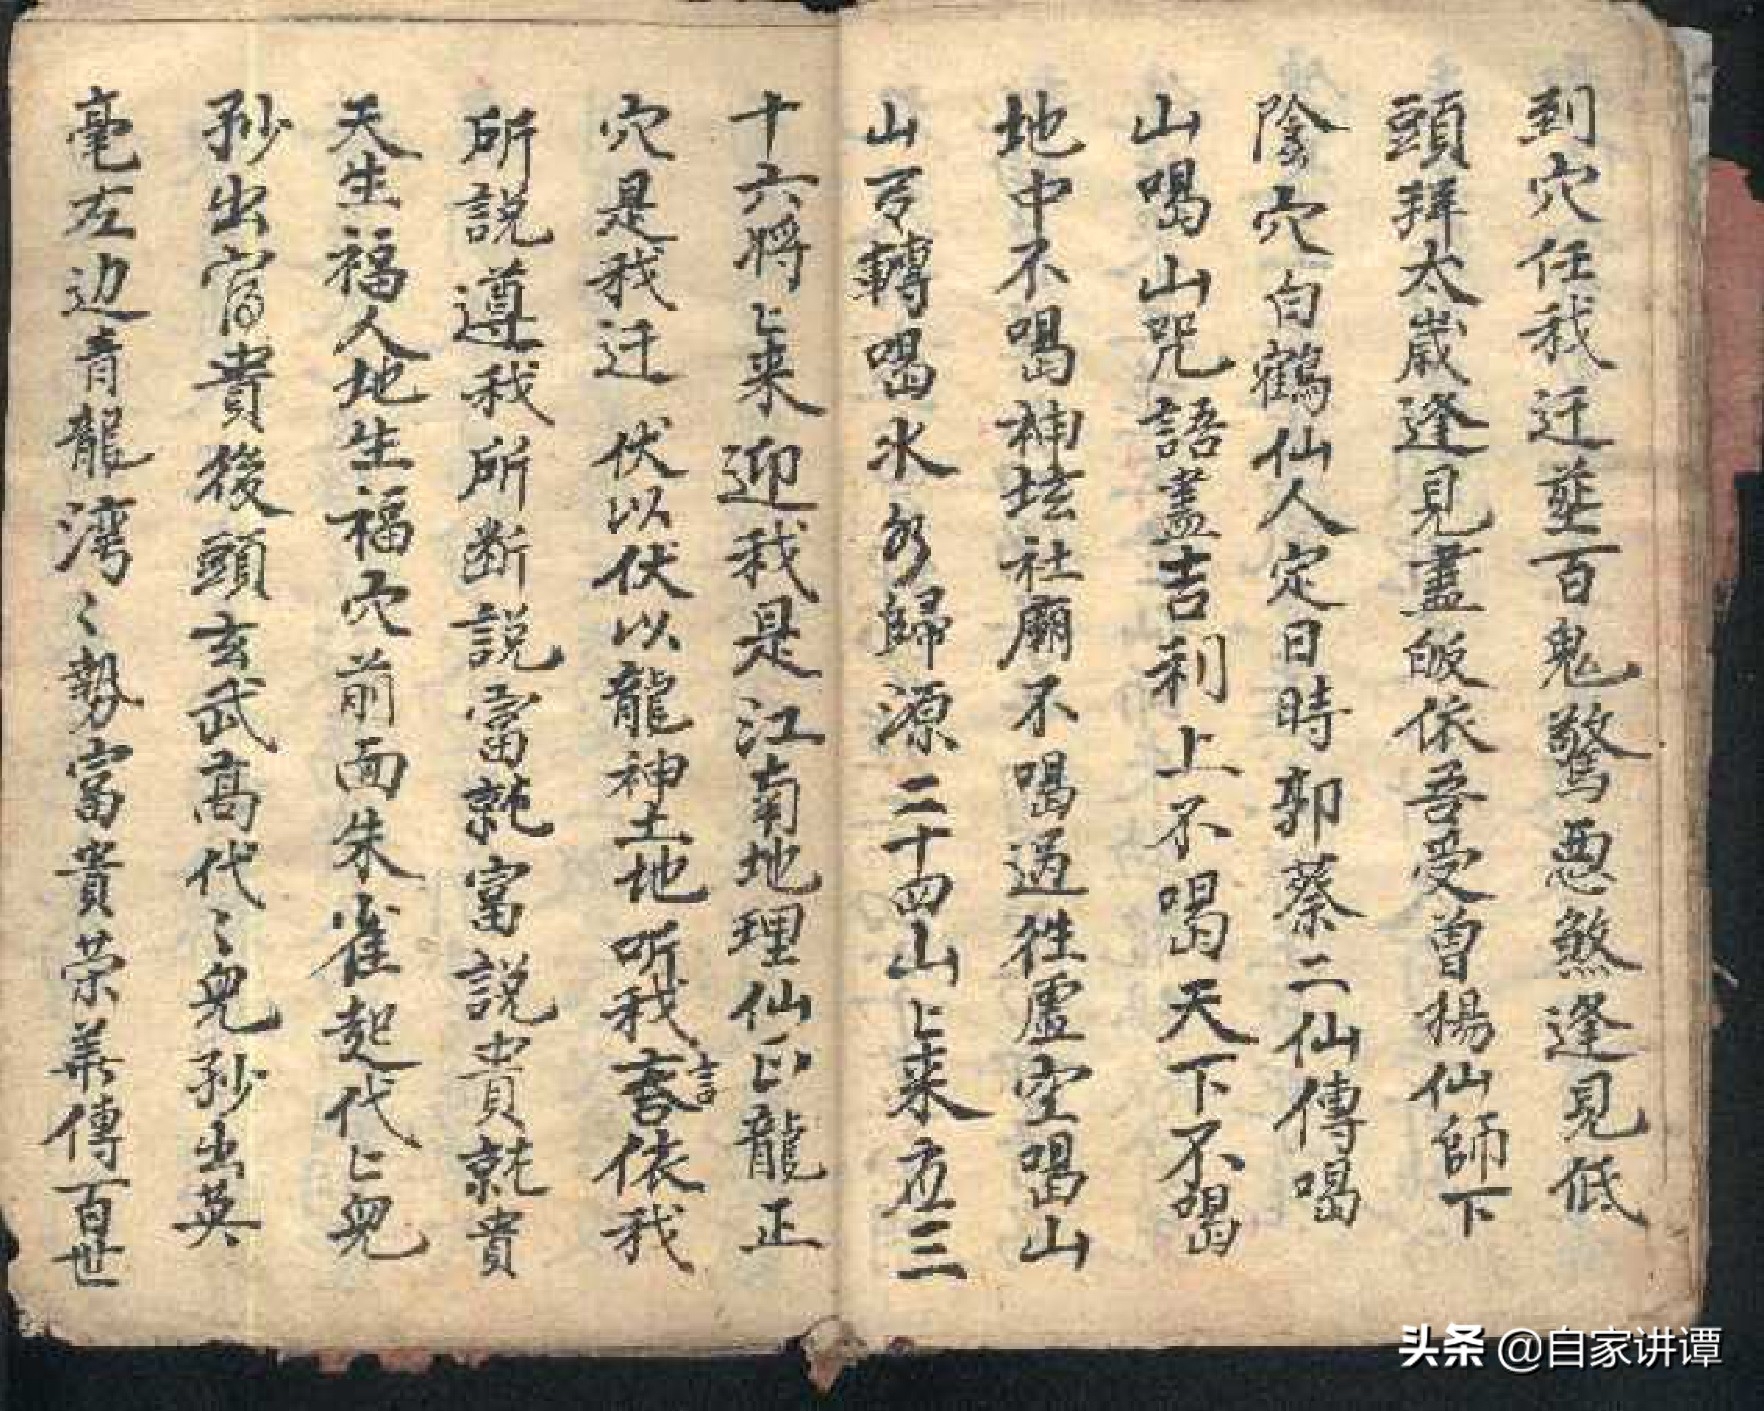 到穴任我迁塟百鬼驚恶煞逢見低
頭拜太歲逢見盡皈依吾受曾楊仙師下
陰穴白鶴仙人定日時郭蔡二仙傳喝
山喝山咒語盡吉利上不喝天下不喝
地中不喝神坛社廟不喝過徃虛空喝山
山 轉喝水水歸源二十四山上来 三
十六将上来迎我是江南地理仙 龍正
穴是我迁伏以伏以龍神土地听我言依我
所說遵我所断說富就富說貴就貴
天生福人地生福穴前面朱雀起代上出
出富貴後頭玄武高代々出 出英
毫左边青龍湾々勢富貴荣華傳百世
头条 @自家讲谭